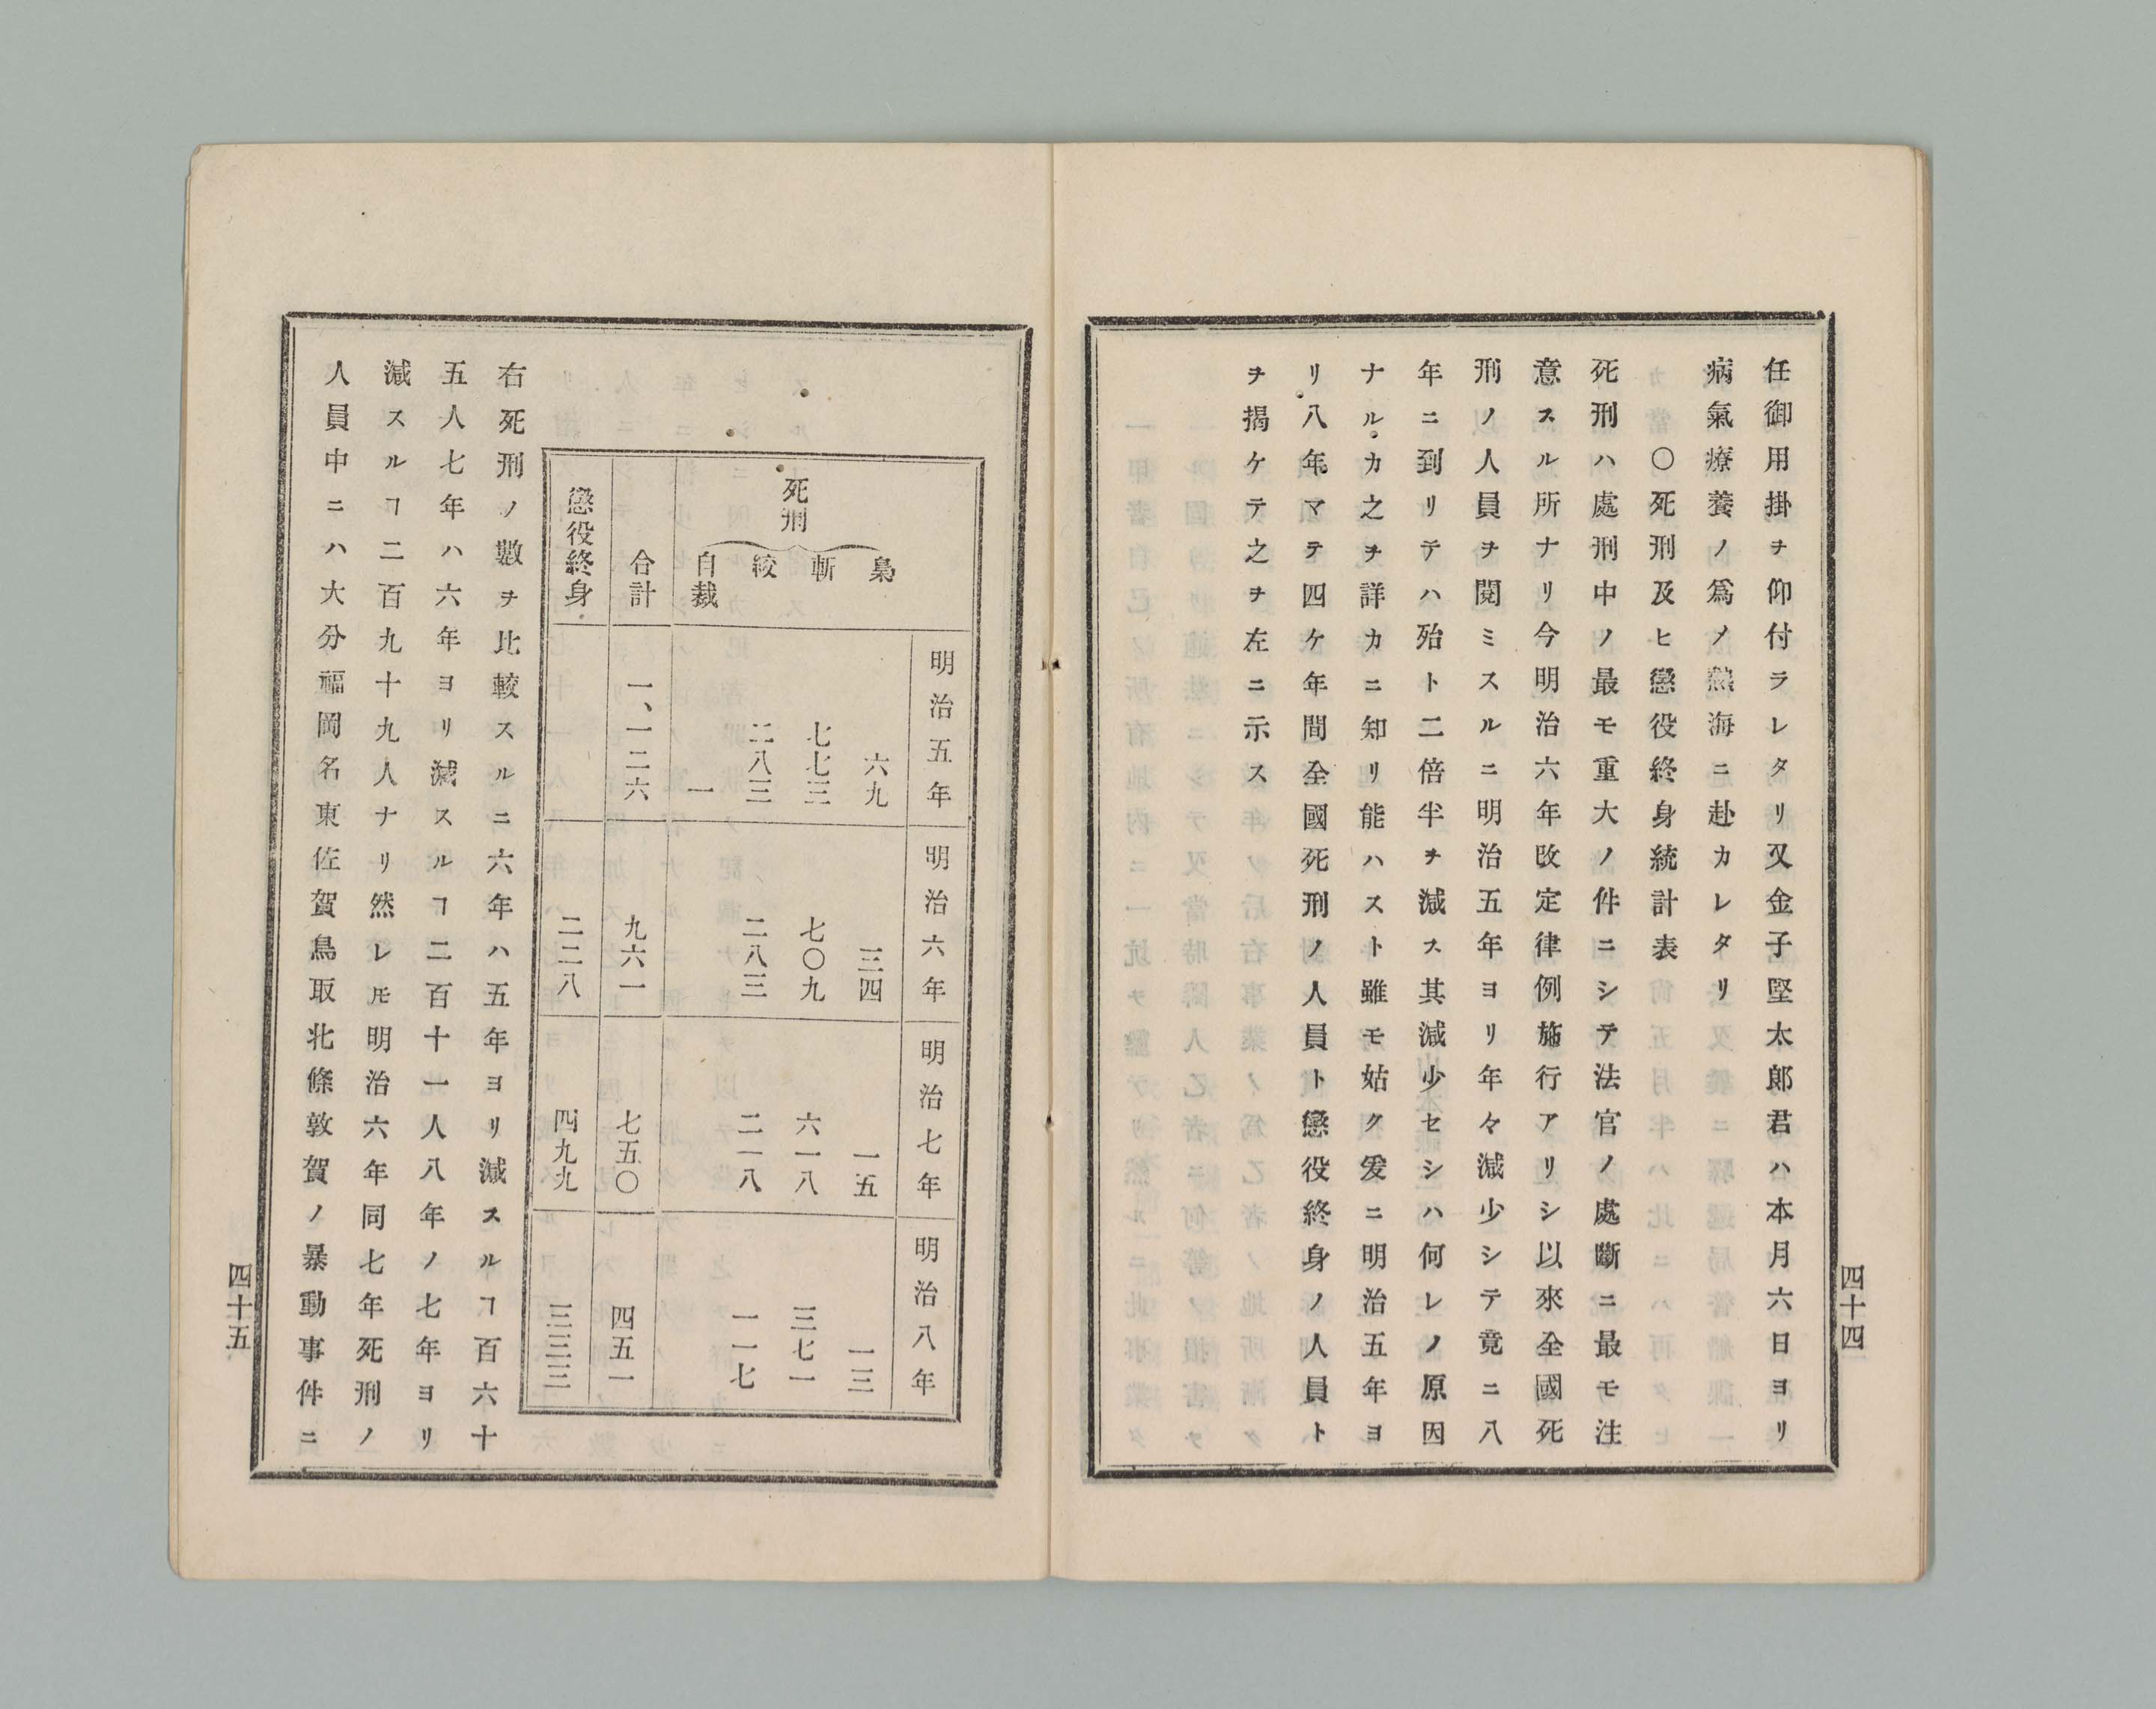 任御用掛ヲ仰付ラレタリ又金子堅太郎君ハ本月六日ヨリ
病氣療養ノ爲メ熱海ニ赴カレタリ
〇死刑及ヒ懲役終身統計表
死刑ハ處刑中ノ最モ重大ノ件ニシテ法官ノ處斷ニ最モ注
意スル所ナリ今明治六年改定律例施行アリシ以來全國死
刑ノ人員ヲ閲ミスルニ明治五年ヨリ年々減少シテ竟ニ八
年ニ到リテハ殆ト二倍半ヲ減ス其減少セシハ何レノ原因
ナルカ之ヲ詳カニ知リ能ハスト雖モ姑ク爰ニ明治五年ヨ
リ八年マテ四ケ年間全國死刑ノ人員ト懲役終身ノ人員ト
ヲ揭ケテ之ヲ左ニ示ス
四十四
明治五年 明治六年 明治七年 明治八年
死刑
梟 六九 三四 一五 一三
斬 七七三 七〇九 六一八 三七一
絞 二八三 二八三 二一八 一一七
自裁 一
合計 一、一二六 九六一 七五〇 四五一
懲役終身 二二八 四九九 三三三
右死刑ノ數ヲ比較スルニ六年ハ五年ヨリ減スルヿ百六十
五人七年ハ六年ヨリ減スルヿ二百十一人八年ノ七年ヨリ
減スルヿ二百九十九人ナリ然レ𪜈明治六年同七年死刑ノ
人員中ニハ大分福岡名東佐賀鳥取北條敦賀ノ暴動事件ニ
四十五